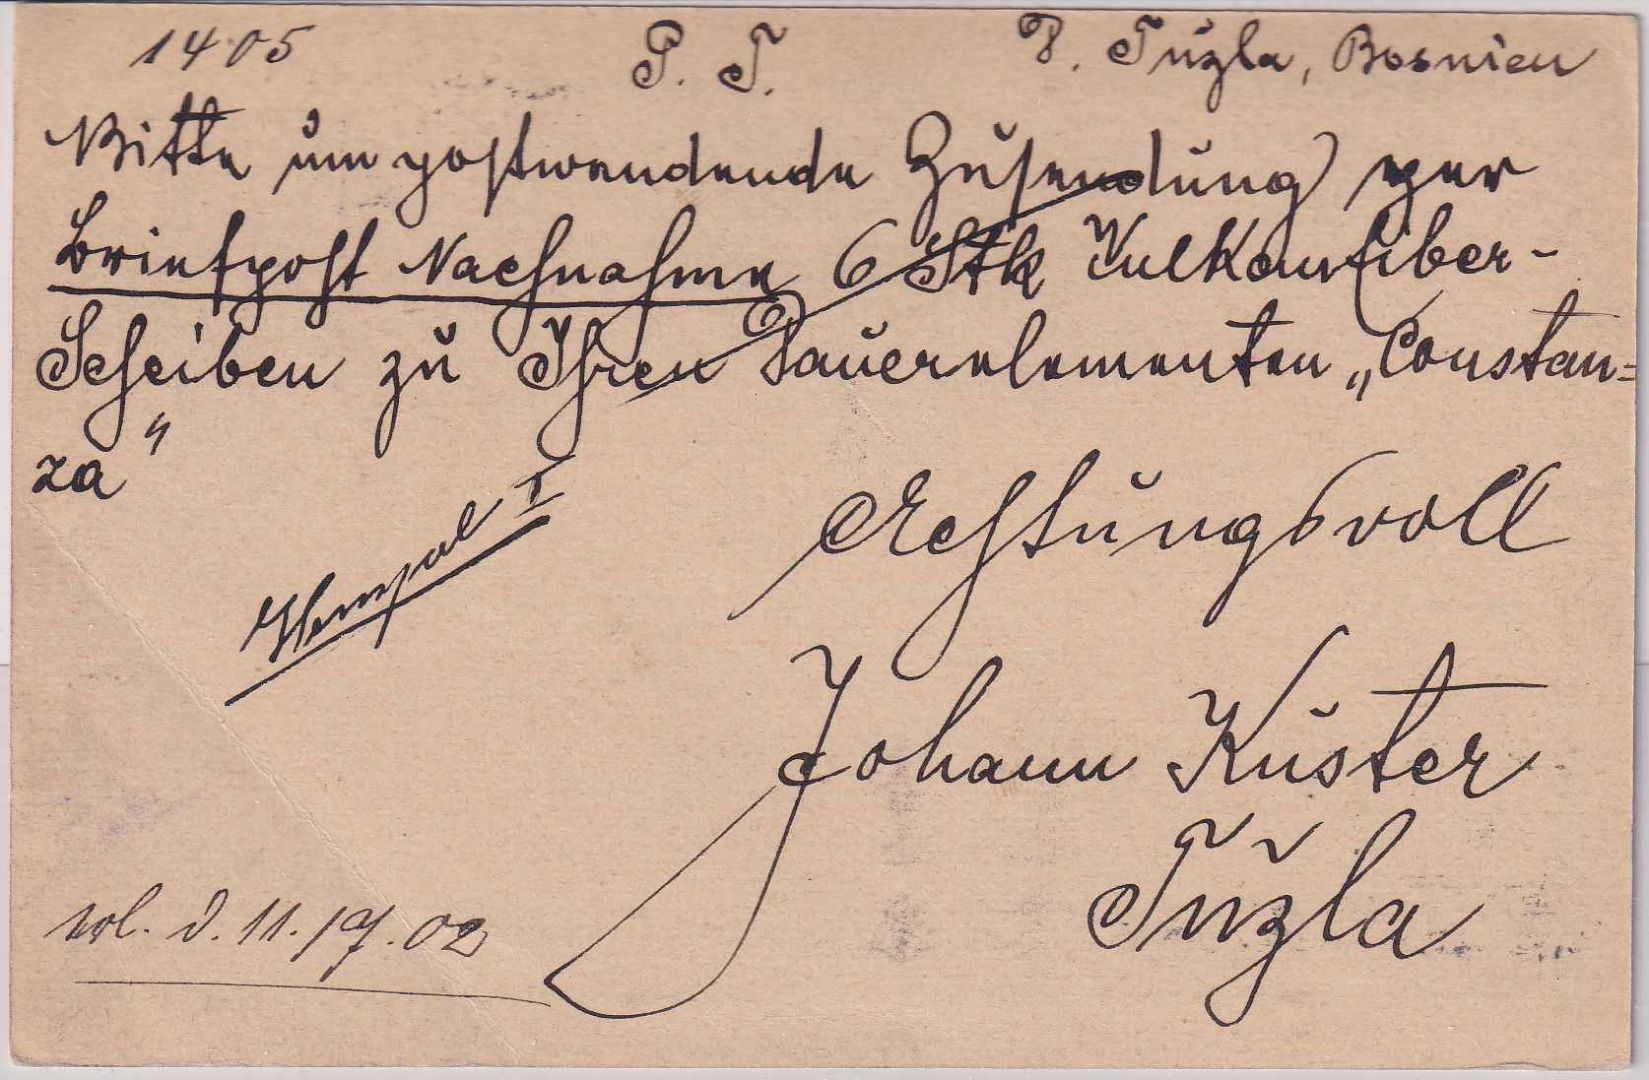 1405 P. T. D. Tuzla, Bosnien
Bitte um postwendende Zusendung per
Briefpost Nachnahme 6 Stk Vulkanfiber-
Scheiben zu Ihren Dauerelementen „Constan=
za"
Achtungsvoll
Johann Kuster
Tuzla
d. 11./9. 02